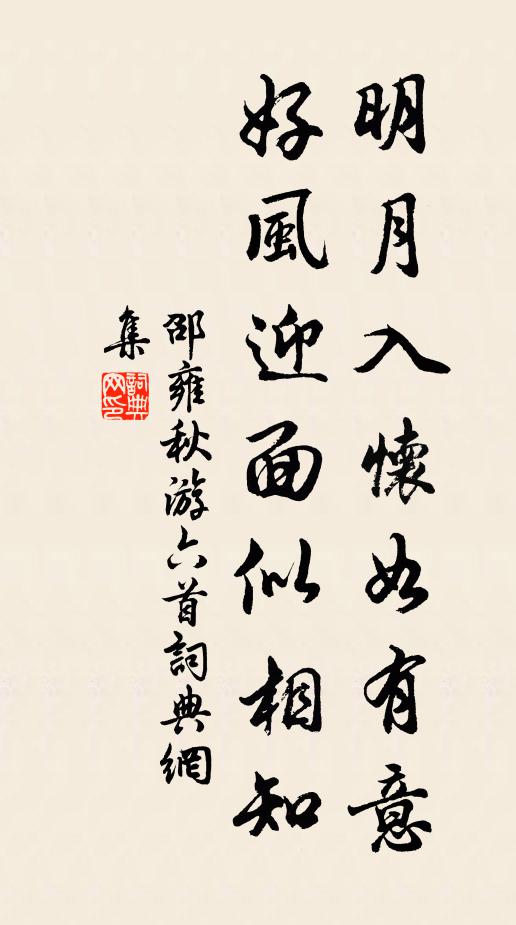 明月入懷如有意
好風迎面似相知
邵雍秋游六首詞典網
集
詞典
网印